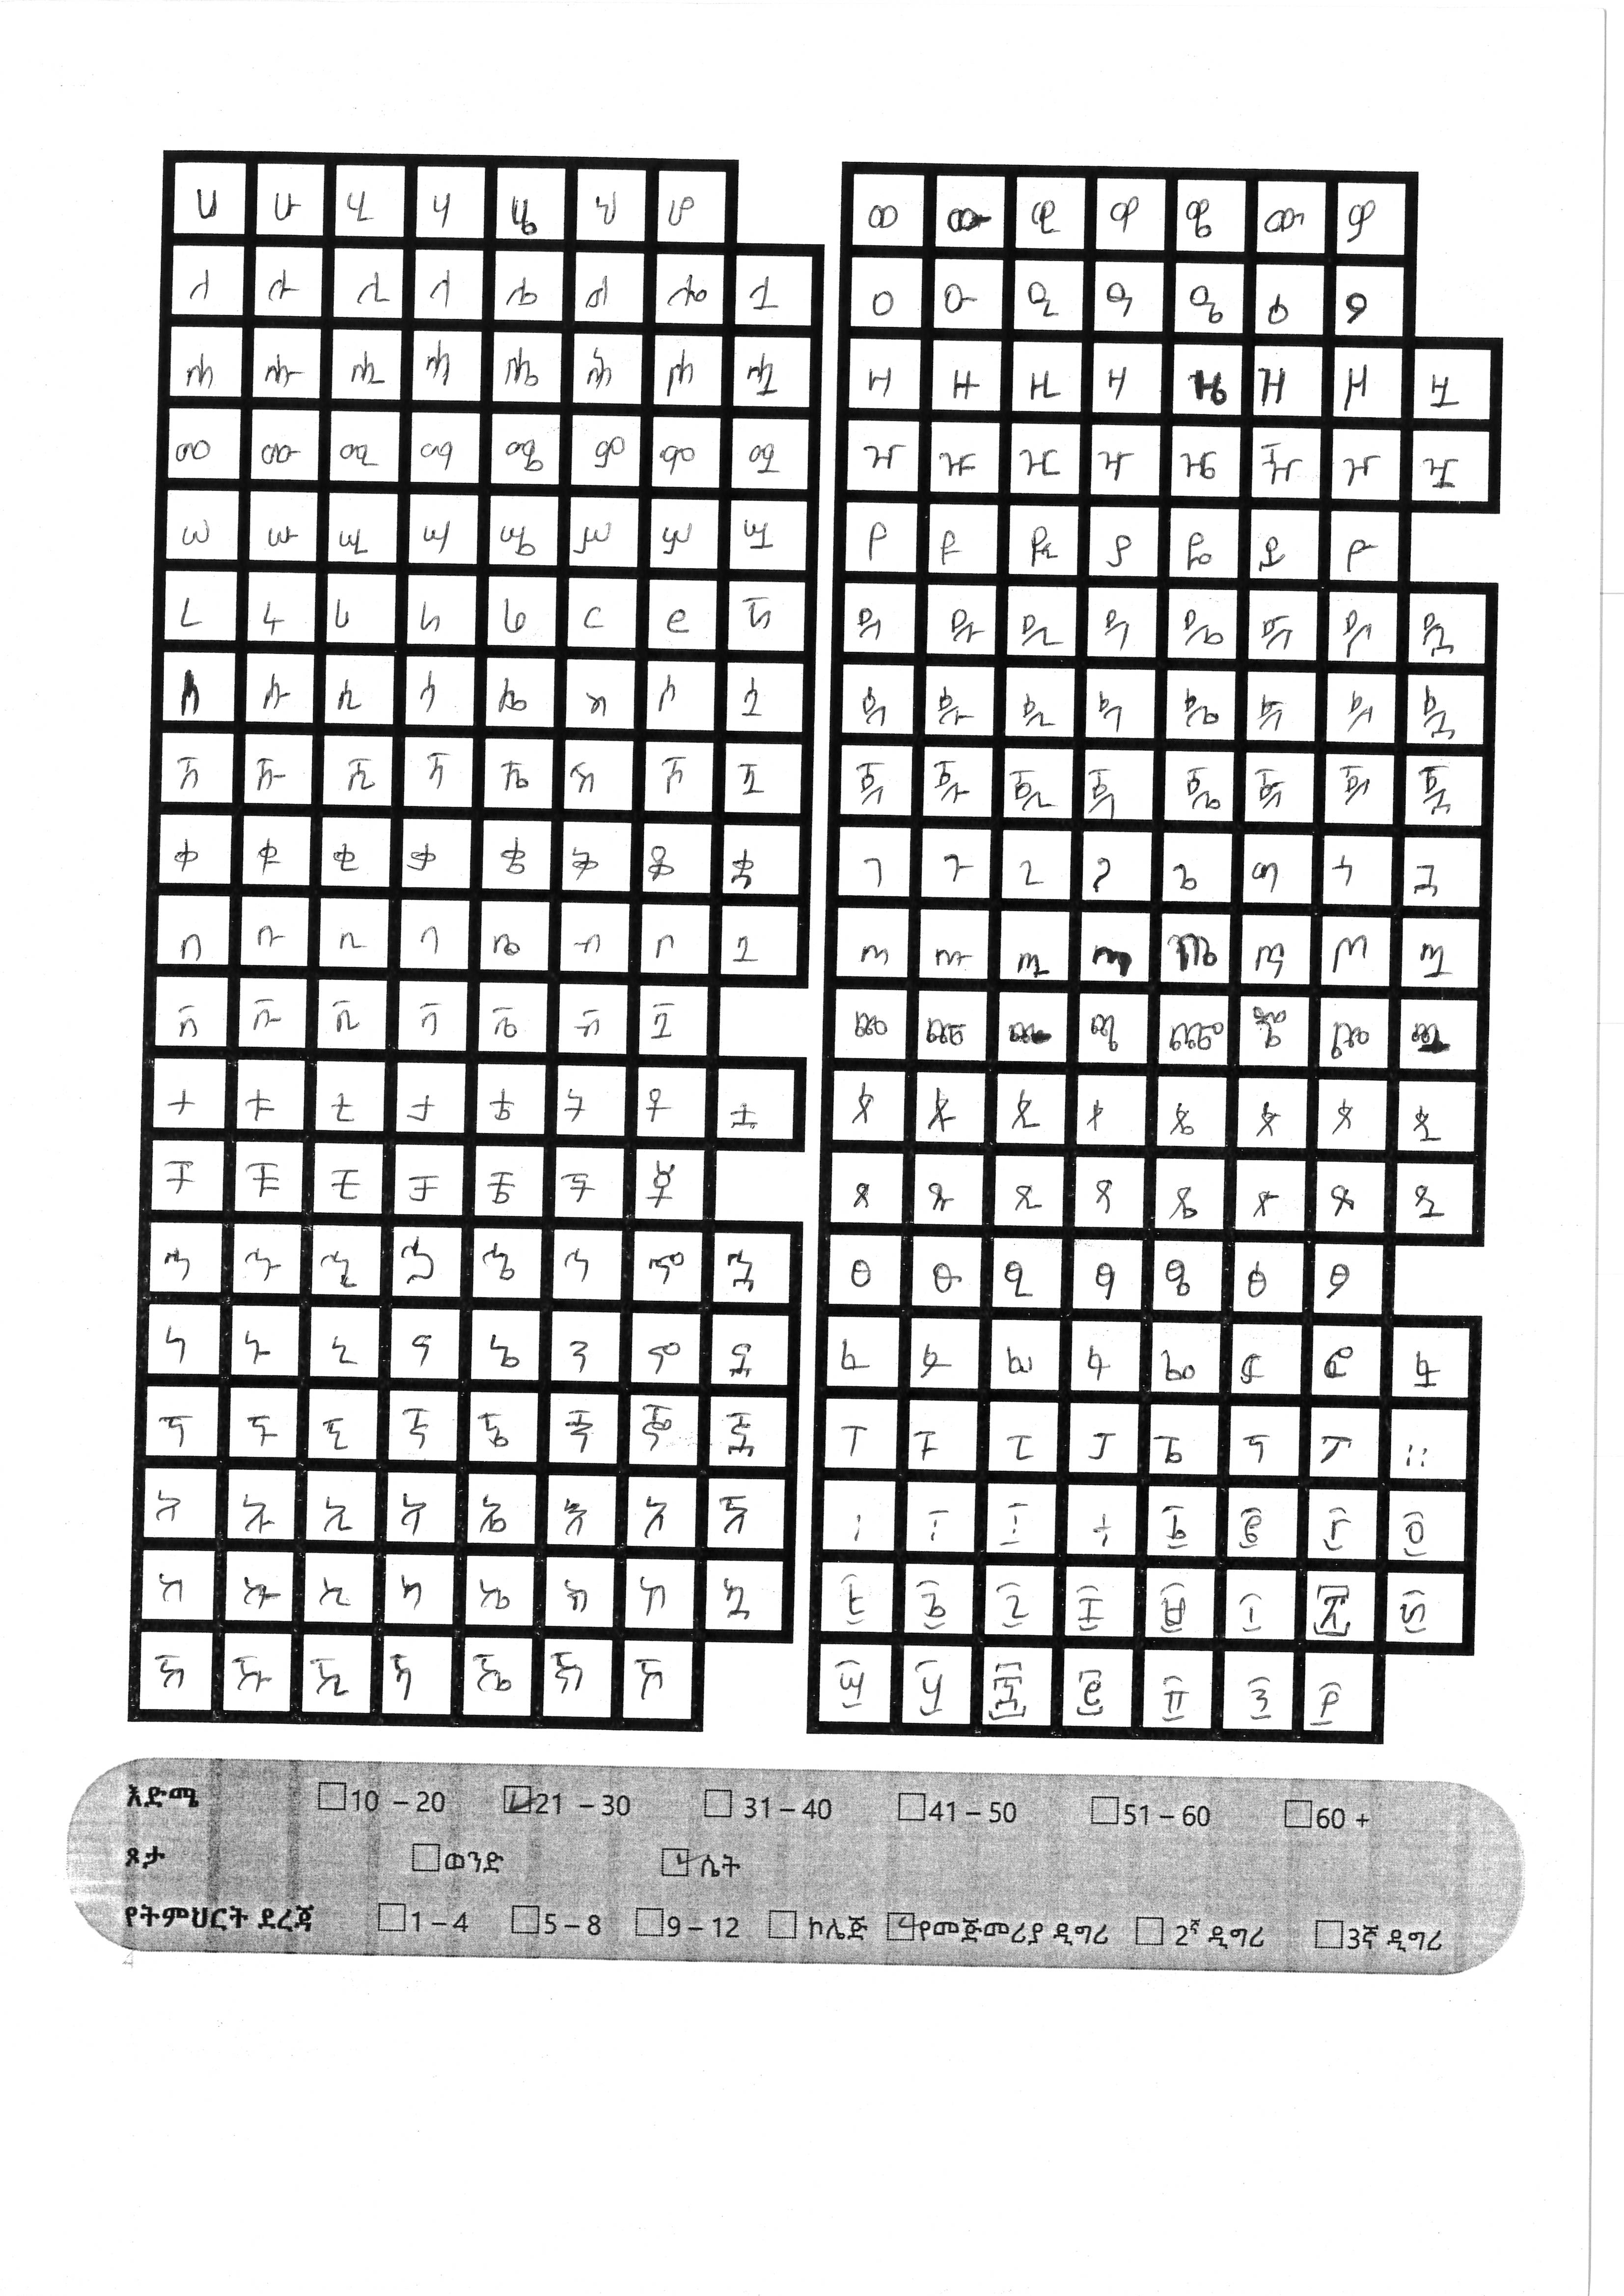 ሀ ሁ ሂ ሃ ሄ ህ ሆ
ለ ሉ ሊ ላ ሌ ል ሎ ሏ
ሐ ሑ ሒ ሓ ሔ ሕ ሖ ሗ
መ ሙ ሚ ማ ሜ ም ሞ ሟ
ሠ ሡ ሢ ሣ ሤ ሥ ሦ ሧ
ረ ሩ ሪ ራ ሬ ር ሮ ሯ
ሰ ሱ ሲ ሳ ሴ ስ ሶ ሷ
ሸ ሹ ሺ ሻ ሼ ሽ ሾ ሿ
ቀ ቁ ቂ ቃ ቄ ቅ ቆ ቋ
በ ቡ ቢ ባ ቤ ብ ቦ ቧ
ቨ ቩ ቪ ቫ ቬ ቭ ቮ
ተ ቱ ቲ ታ ቴ ት ቶ ቷ
ቸ ቹ ቺ ቻ ቼ ች ቾ
ኀ ኁ ኂ ኃ ኄ ኅ ኆ ኋ
ነ ኑ ኒ ና ኔ ን ኖ ኗ
ኘ ኙ ኚ ኛ ኜ ኝ ኞ ኟ
አ ኡ ኢ ኣ ኤ እ ኦ ኧ
ከ ኩ ኪ ካ ኬ ክ ኮ ኳ
ኸ ኹ ኺ ኻ ኼ ኽ ኾ
ወ ዉ ዊ ዋ ዌ ው ዎ
ዐ ዑ ዒ ዓ ዔ ዕ ዖ
ዘ ዙ ዚ ዛ ዜ ዝ ዞ ዟ
ዠ ዡ ዢ ዣ ዤ ዥ ዦ ዧ
የ ዩ ዪ ያ ዬ ይ ዮ
ደ ዱ ዲ ዳ ዴ ድ ዶ ዷ
ደ ዱ ዲ ዳ ዴ ድ ዶ ዷ
ጀ ጁ ጂ ጃ ጄ ጅ ጆ ጇ
ገ ጉ ጊ ጋ ጌ ግ ጎ ጓ
ጠ ጡ ጢ ጣ ጤ ጥ ጦ ጧ
ጨ ጩ ጪ ጫ ጬ ጭ ጮ ጯ
ጰ ጱ ጲ ጳ ጴ ጵ ጶ ጷ
ጸ ጹ ጺ ጻ ጼ ጽ ጾ ጿ
ፀ ፁ ፂ ፃ ፄ ፅ ፆ
ፈ ፉ ፊ ፋ ፌ ፍ ፎ ፏ
ፐ ፑ ፒ ፓ ፔ ፕ ፖ ።
፡ ፣ ፤ ÷ ፩ ፪ ፫ ፬
፭ ፮ ፯ ፰ ፱ ፲ ፳ ፴
፵ ፶ ፷ ፸ ፹ ፺ ፻
እድሜ 10 – 20 21 – 30 31 – 40 41 – 50 51 – 60 60 +
ጾታ ወንድ ሴት
የትምህርት ደረጃ 1 – 4 5 – 8 9 – 12 ኮሌጅ የመጀመሪያ ዲግሪ 2ኛ ዲግሪ 3ኛ ዲግሪ